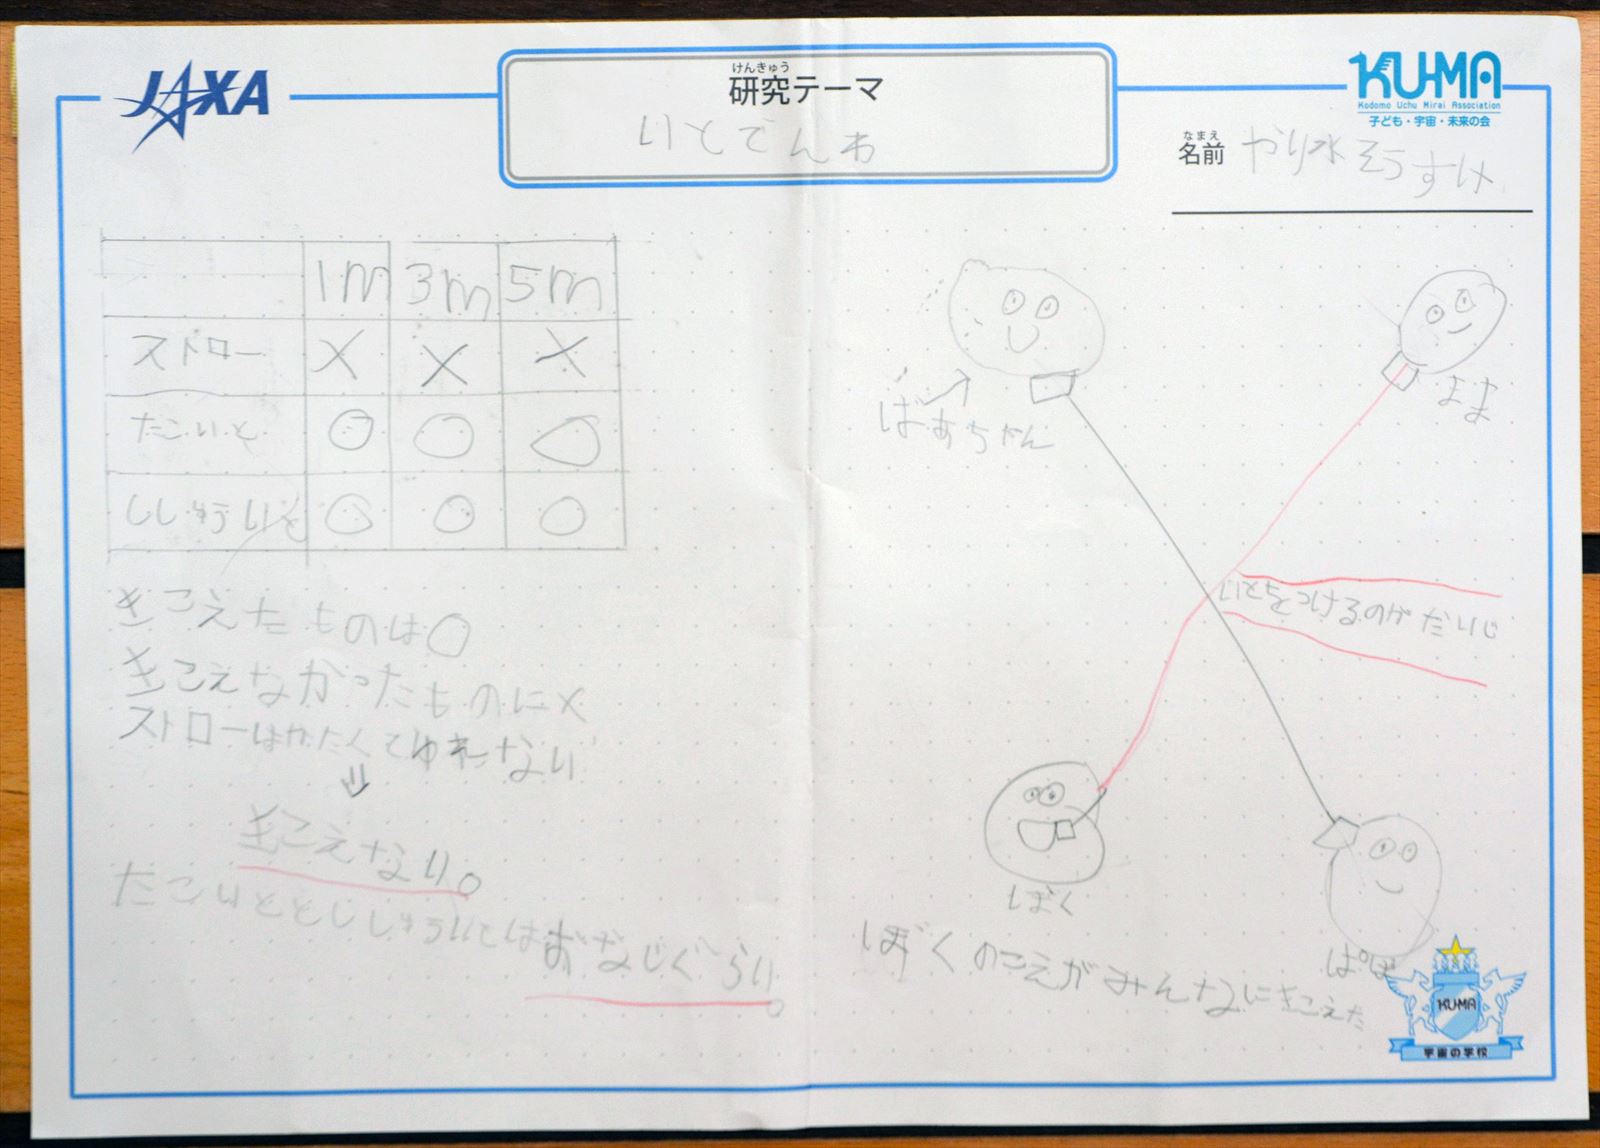 JAXA
けんきゅう
研究テーマ
いとでんわ
KU-MA
Kodomo Uchu Mirai Association
子ども・宇宙・未来の会
なまえ
名前 やり水そうすけ
1m 3m 5m
ストロー × × ×
たこいと ○ ○ ○
ししゅういと ○ ○ ○
きこえたものは○
きこえなかったものに×
ストローはかたくてゆれない
⇓
きこえない。
たこいととししゅういとはおなじぐらい。
ばあちゃん
まま
いとをつけるのがだいじ
ぼく
ぱぱ
ぼくのこえがみんなにきこえた
KU-MA
宇宙の学校